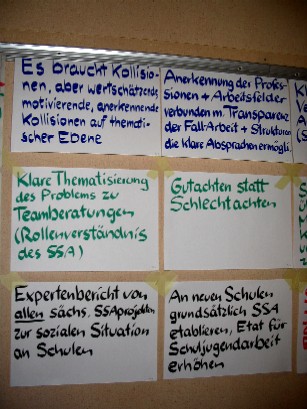 Es braucht Kollisio-
nen, aber wertschätzende,
motivierende, anerkennende
Kollisionen auf themati-
scher Ebene
Anerkennung der Profes-
sionen + Arbeitsfelder
verbunden m. Transparenz
der Fall-Arbeit + Strukturen
die klare Absprachen ermögli.
Klare Thematisierung
des Problems zu
Teamberatungen
(Rollenverständnis
des SSA)
Gutachten statt
Schlechtachten
Expertenbericht von
allen sächs. SSAprojekten
zur sozialen Situation
an Schulen
An neuen Schulen
grundsätzlich SSA
etablieren, Etat für
Schuljugendarbeit
erhöhen